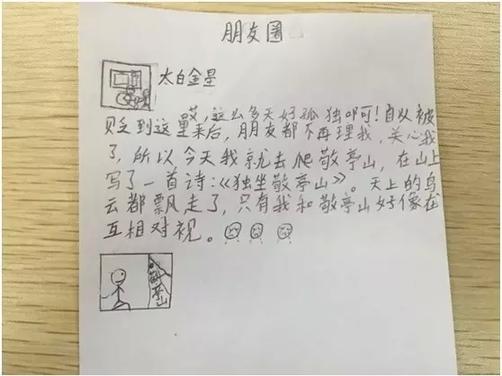 朋友圈
太白金星
哎，这么多天好孤独呵可！自从被
贬到这里来后，朋友都不再理我，关心我
了，所以今天我就去爬敬亭山，在山上
写了一首诗：《独坐敬亭山》。天上的鸟
云都飘走了，只有我和敬亭山好像在
互相对视。
敬亭山